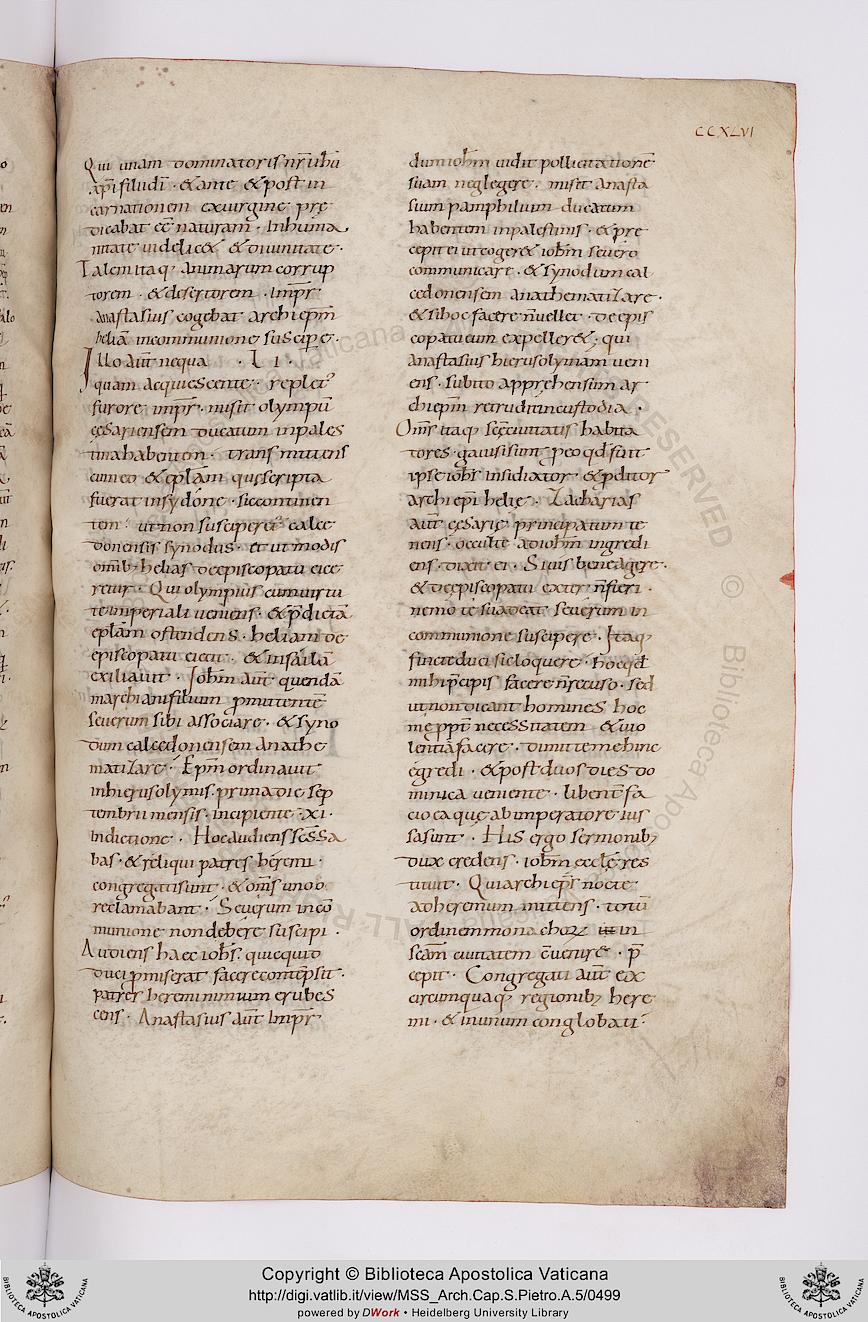 CCXLVI
Qui unam dominatoris nr̄i ih̄u
xp̄i filii dī · & ante & post in
carnationem ex uirgine prę
dicabat eē naturam · In huma
nitate uidelic& & diuinitate ·
Talem itaq; animarum corrup
torem · & desertorem · Imp̄r
anastasius cogebat archiep̄m
heliā in communione suscipe ·
Illo aūt nequa · L I ·
quam adquiescente · replet'
furore imp̄r · misit olympū
cęsariensem ducatum in pales
tina habentem · transmittens
cum eo & ep̄lam quę scripta
fuerat in sydone · sic continen
tem · ut non susciperet calce
donensis synodus · et ut modis
omīb; helias de episcopatu eice
retur · Qui olympius cum uirtu
te imperiali ueniens · & p̄dictā
ep̄lam ostendens · heliam de
episcopatu eicit · & in sailā
exiliauit · Ioh̄m aūt quendā
marchiani filium promittentē
seuerum sibi associare · & syno
dum calcedonensem anathe
matizare · Ep̄m ordinauit
in hierusolymis · prima die sep
tembrii mensis · incipiente · XI ·
indictione · Hoc audiens s̄c̄s sa
bas · & reliqui patres heremi ·
congregati sunt · & om̄s uno o
re clamabant · Seuerum in cō
munione non debere suscipi ·
Audiens haec ioh̄s · quicquid
duci promiserat facere contēpsit ·
patres heremi nimium erubes
cens · Anastasius aūt Imp̄r
dum ioh̄m uidit pollicitationē
suam neglegere · misit anasta
sium pamphilium ducatum
habentem in palestinis · & pre
cepit ei ut coger& ioh̄m seuero
communicare · & synodum cal
cedonensem anathematizare ·
& si hoc facere n̄ uellet · de epis
copatu eum expeller& · qui
anastasius hierusolymam ueni
ens · subito apprehensum ar
chiep̄m retrudit in custodia ·
Om̄s itaq; s̄c̄ę ciuitatis habita
tores · gauisi sunt p eo qd sūt
ipse ioh̄s insidiator · & pditor
archiep̄i helię · Zacharias
aūt cęsarię principatum te
nens · occulte ad ioh̄m ingredi
ens · dixit ei · Si uis bene agere ·
& de episcopatu exter n̄ fieri ·
nemo te suadeat seuerum in
communione suscipere · Itaq;
finctę duci sic loquere · hoc qd
mihi p̄cipis facere n̄ recuso · sed
ut non dicant homines hoc
me ppt̄ necessitatem & uio
lentiā facere · dimitte me hinc
egredi · & post duos dies do
minica ueniente · libent̄ fa
cio ea quę ab imperatore ius
sa sunt · His ergo sermonib;
dux credens · ioh̄m ęcclę res
tituit · Qui archiep̄s nocte
ad heremum mittens · totū
ordinem monachorum in
s̄c̄am ciuitatem c̄uenire · p̄
cepit · Congregati aūt ex
circumquaq; regionib; here
mi · & in unum conglobati ·
Copyright © Biblioteca Apostolica Vaticana
http://digi.vatlib.it/view/MSS_Arch.Cap.S.Pietro.A.5/0499
powered by DWork • Heidelberg University Library